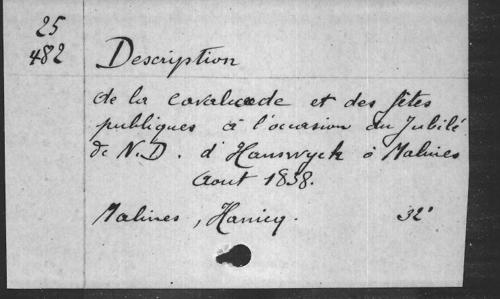 25
482
Description
de la cavalcade et des fêtes
publiques à l'occasion du Jubilé
de N. D. d'Hanswyck à Malines
Aout 1838.
Malines, Hanicq. 32°